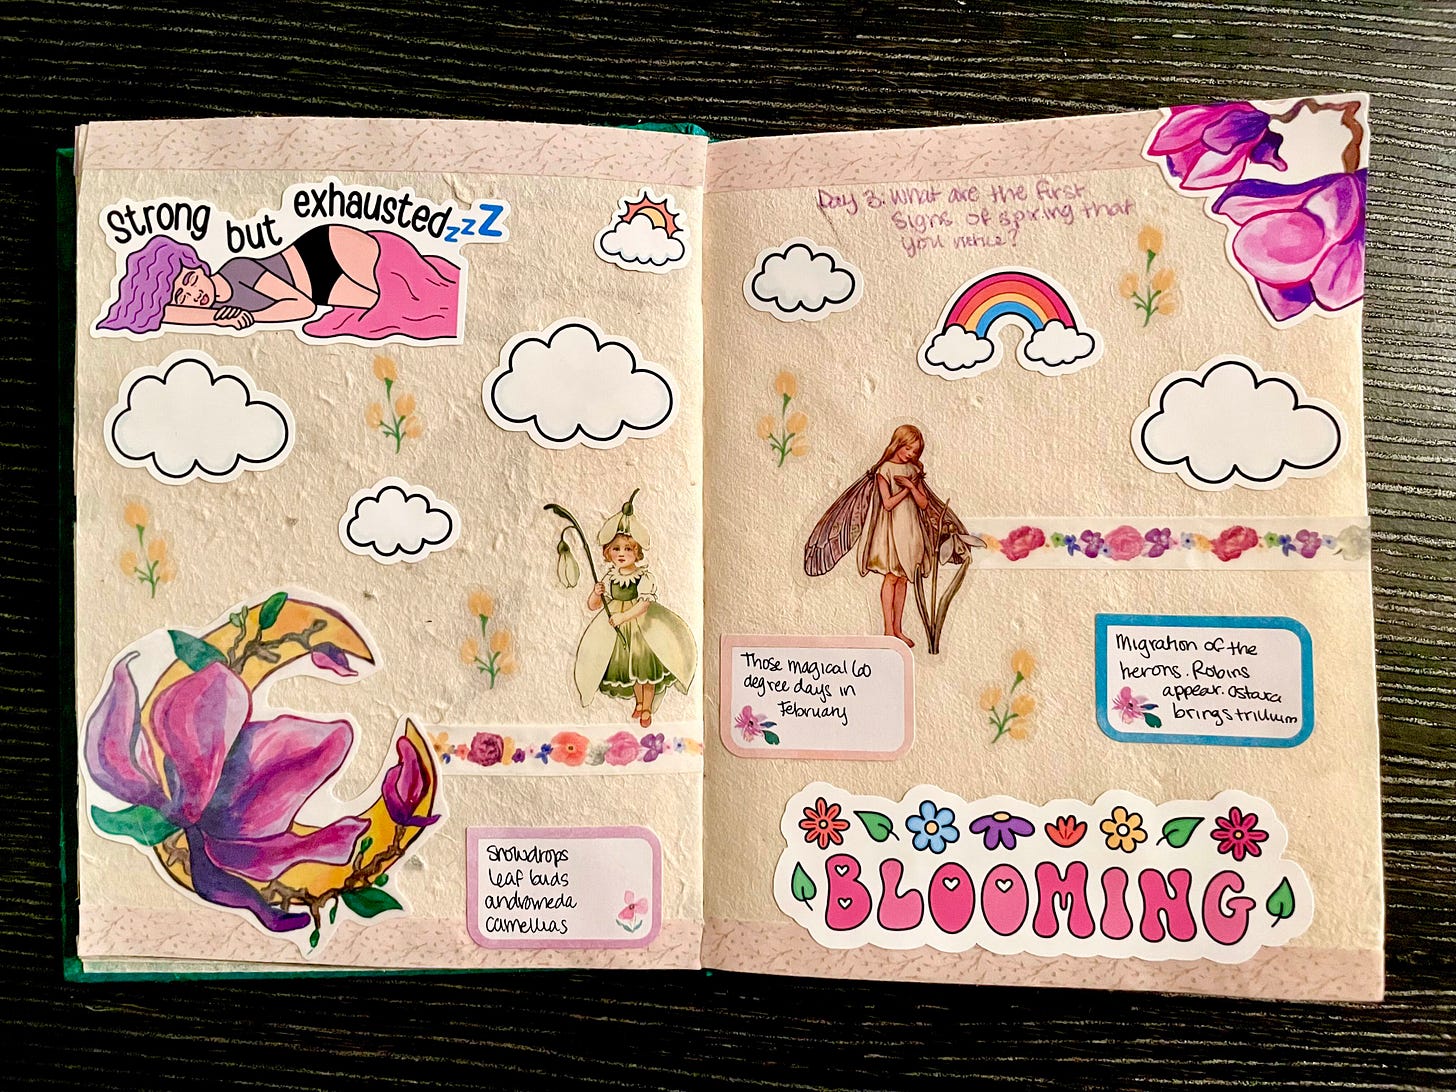 Strong but exhausted zzZ
Snowdrops
leaf buds
andromeda
camellias
Day 3: What are the first
signs of spring that
you notice?
Those magical 60
degree days in
February
Migration of the
herons. Robins
appear. Ostara
brings trillium
BLOOMING